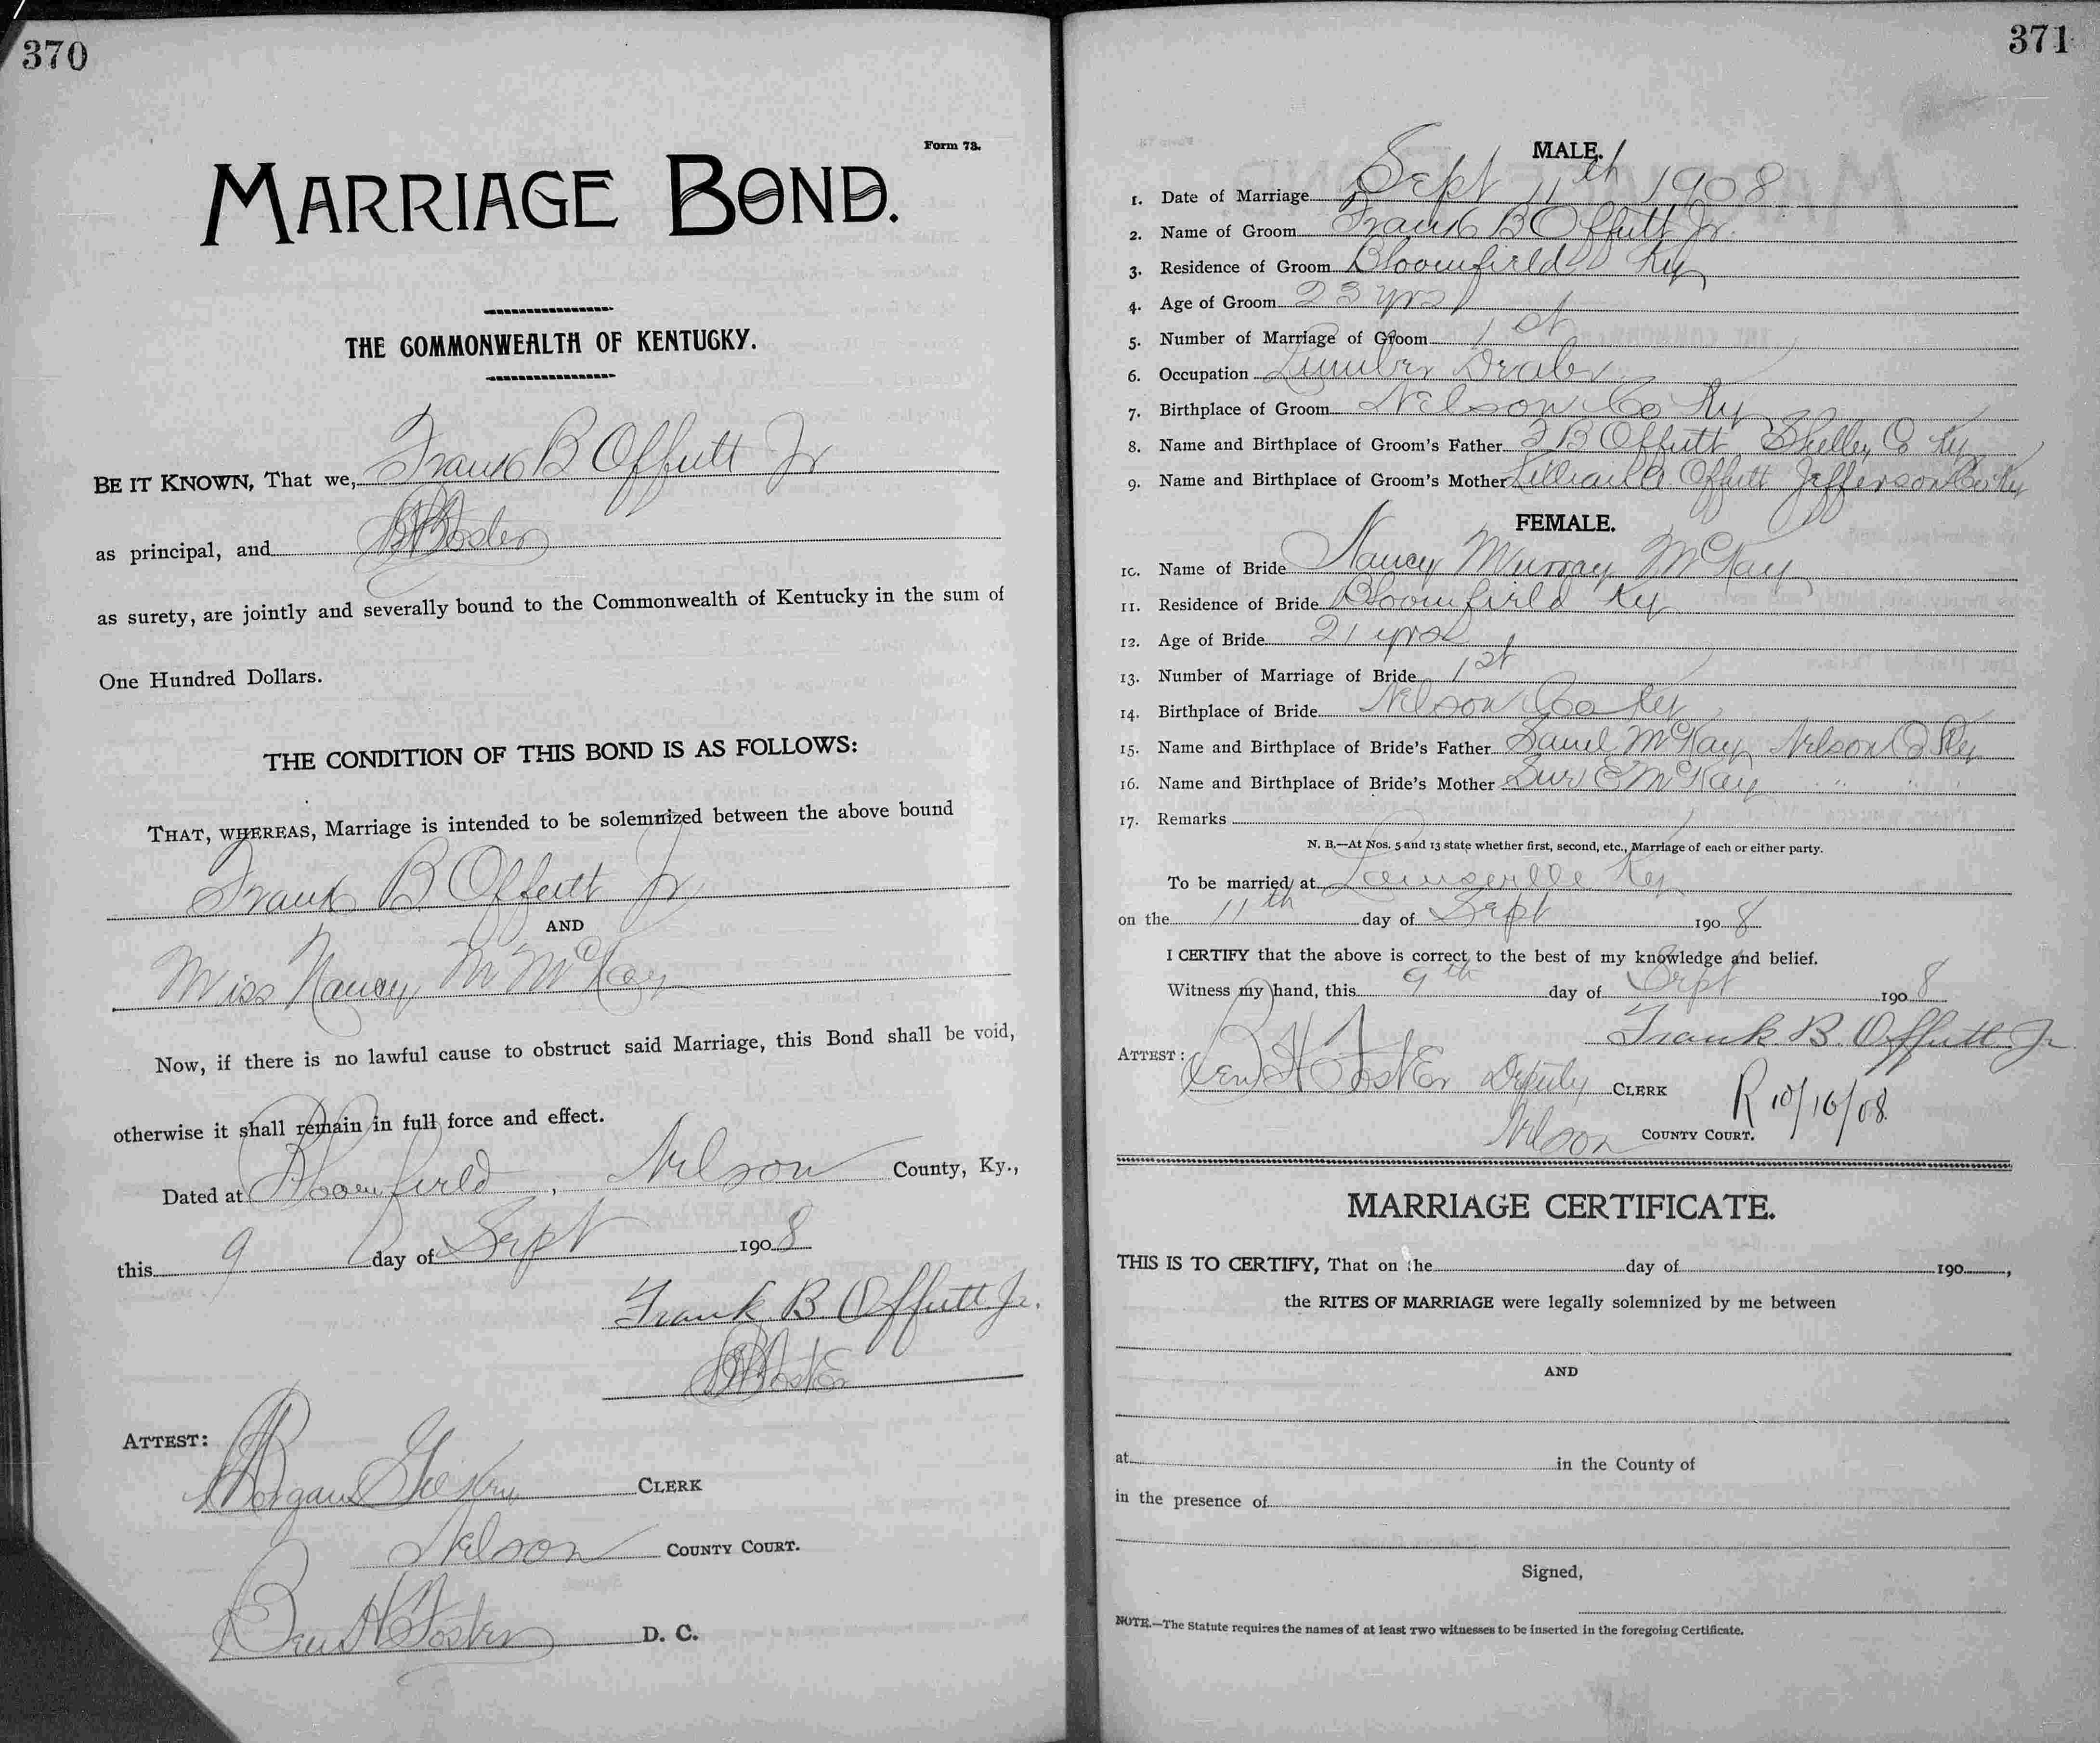 370
Form 73.
MARRIAGE BOND.
THE COMMONWEALTH OF KENTUCKY.
BE IT KNOWN, That we, Frank B Offutt Jr
as principal, and
as surety, are jointly and severally bound to the Commonwealth of Kentucky in the sum of
One Hundred Dollars.
THE CONDITION OF THIS BOND IS AS FOLLOWS:
THAT, WHEREAS, Marriage is intended to be solemnized between the above bound
Frank B Offutt Jr
AND
Miss Nancy M McKay
Now, if there is no lawful cause to obstruct said Marriage, this Bond shall be void,
otherwise it shall remain in full force and effect.
Dated at Bloomfield, Nelson County, Ky.,
this 9 day of Sept 1908
Frank B. Offutt Jr.
ATTEST:
CLERK
Nelson COUNTY COURT.
Ben H Foster D. C.
371
MALE.
1. Date of Marriage Sept 11th 1908
2. Name of Groom Frank B Offutt Jr.
3. Residence of Groom Bloomfield Ky
4. Age of Groom 23 yrs
5. Number of Marriage of Groom 1st
6. Occupation Lumber Dealer
7. Birthplace of Groom Nelson Co Ky
8. Name and Birthplace of Groom's Father F B Offutt Shelby Co Ky
9. Name and Birthplace of Groom's Mother Offutt Jefferson Co Ky
FEMALE.
10. Name of Bride Nancy Murray McKay
11. Residence of Bride Bloomfield Ky
12. Age of Bride 21 yrs
13. Number of Marriage of Bride 1st
14. Birthplace of Bride Nelson Co Ky
15. Name and Birthplace of Bride's Father McKay Nelson Co Ky
16. Name and Birthplace of Bride's Mother Sue E McKay " " "
17. Remarks
N. B.—At Nos. 5 and 13 state whether first, second, etc., Marriage of each or either party.
To be married at Louisville Ky
on the 11th day of Sept 1908
I CERTIFY that the above is correct to the best of my knowledge and belief.
Witness my hand, this 9th day of Sept 1908
Frank B. Offutt Jr
ATTEST: Ben H Foster Deputy CLERK
R 10/16/08
Nelson COUNTY COURT.
MARRIAGE CERTIFICATE.
THIS IS TO CERTIFY, That on the day of 190 ,
the RITES OF MARRIAGE were legally solemnized by me between
AND
at in the County of
in the presence of
Signed,
NOTE.—The Statute requires the names of at least TWO witnesses to be inserted in the foregoing Certificate.